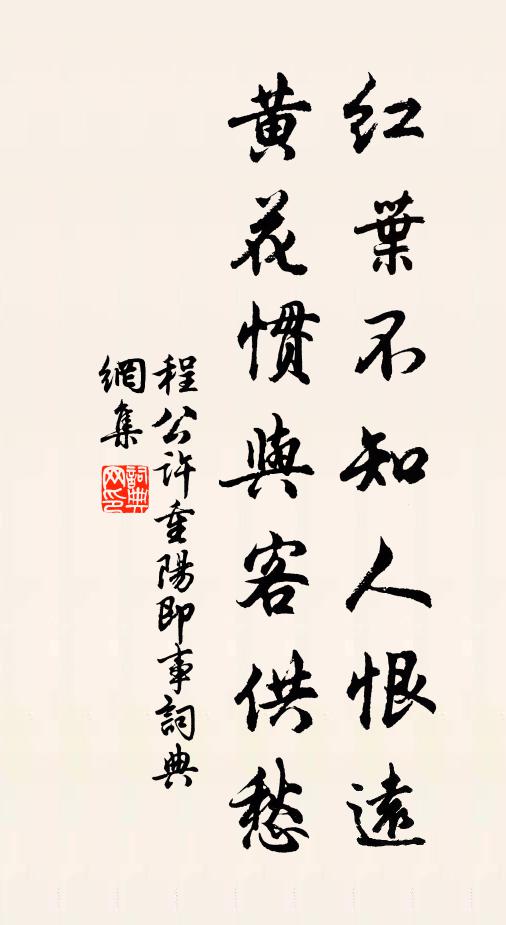 紅葉不知人恨遠
黃花慣與客供愁
程公許重陽即事詞典
網集
詞典
网印